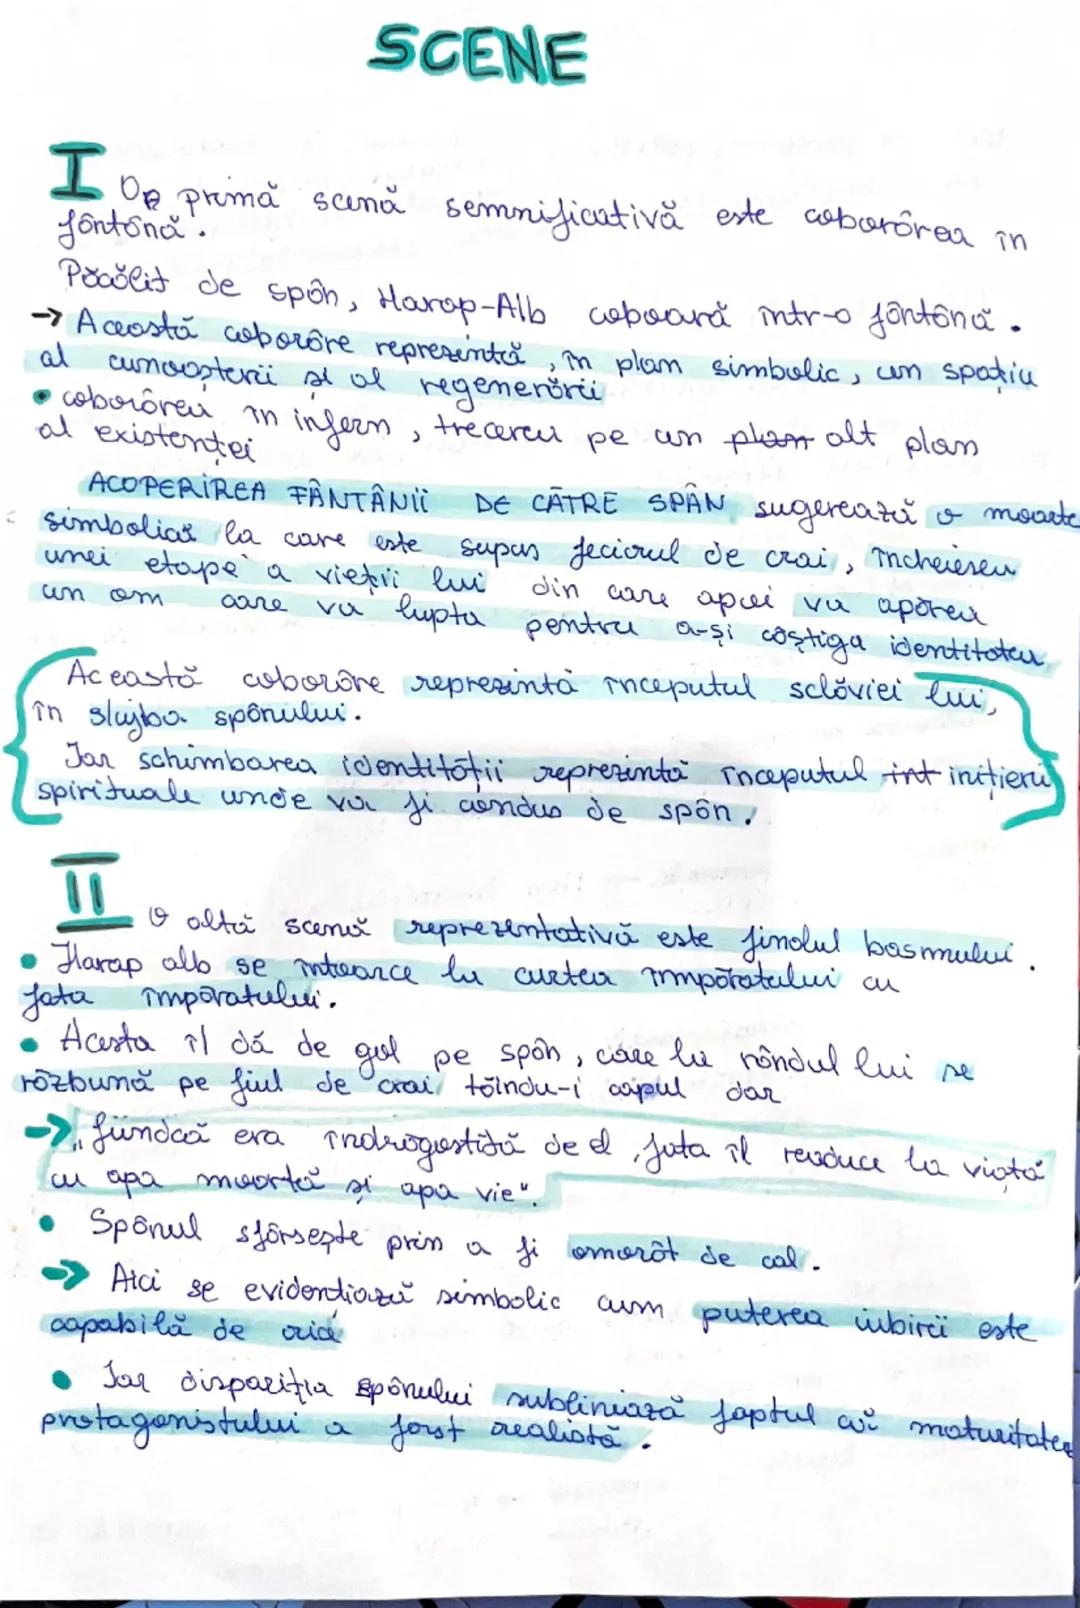 SCENE
I O primă scenă semnificativă este coborârea în
fântână.
Păcălit de spân, Harap-Alb coboară într-o fântână.
→ Această coborâre reprezintă, în plan simbolic, un spațiu
al cunoașterii și al regenerării
• coborârea în infern, trecerea pe un plan alt plan
al existenței
ACOPERIREA FÂNTÂNII DE CĂTRE SPÂN sugerează o moarte
simbolică la care este supus feciorul de crai, încheierea
unei etape a vieții lui din care apoi va apărea
un om care va lupta pentru a-și câștiga identitatea
Această coborâre reprezintă începutul sclăviei lui,
în slujba spânului.
Iar schimbarea identității reprezintă începutul int inițierii
spirituale unde va fi condus de spân.
II O altă scenă reprezentativă este finalul basmului.
• Harap alb se întoarce la curtea împăratului cu
fata împăratului.
• Acesta îl dă de gol pe spân, care la rândul lui se
răzbună pe fiul de crai tăindu-i capul dar
→ „fiindcă era îndrogostită de el, fata îl readuce la viață
cu apa moartă și apa vie".
• Spânul sfârsește prin a fi omorât de cal.
→ Aici se evidențiază simbolic cum puterea iubirii este
capabilă de orice
• Iar dispariția spânului subliniază faptul că maturitatea
protagonistului a fost realistă.